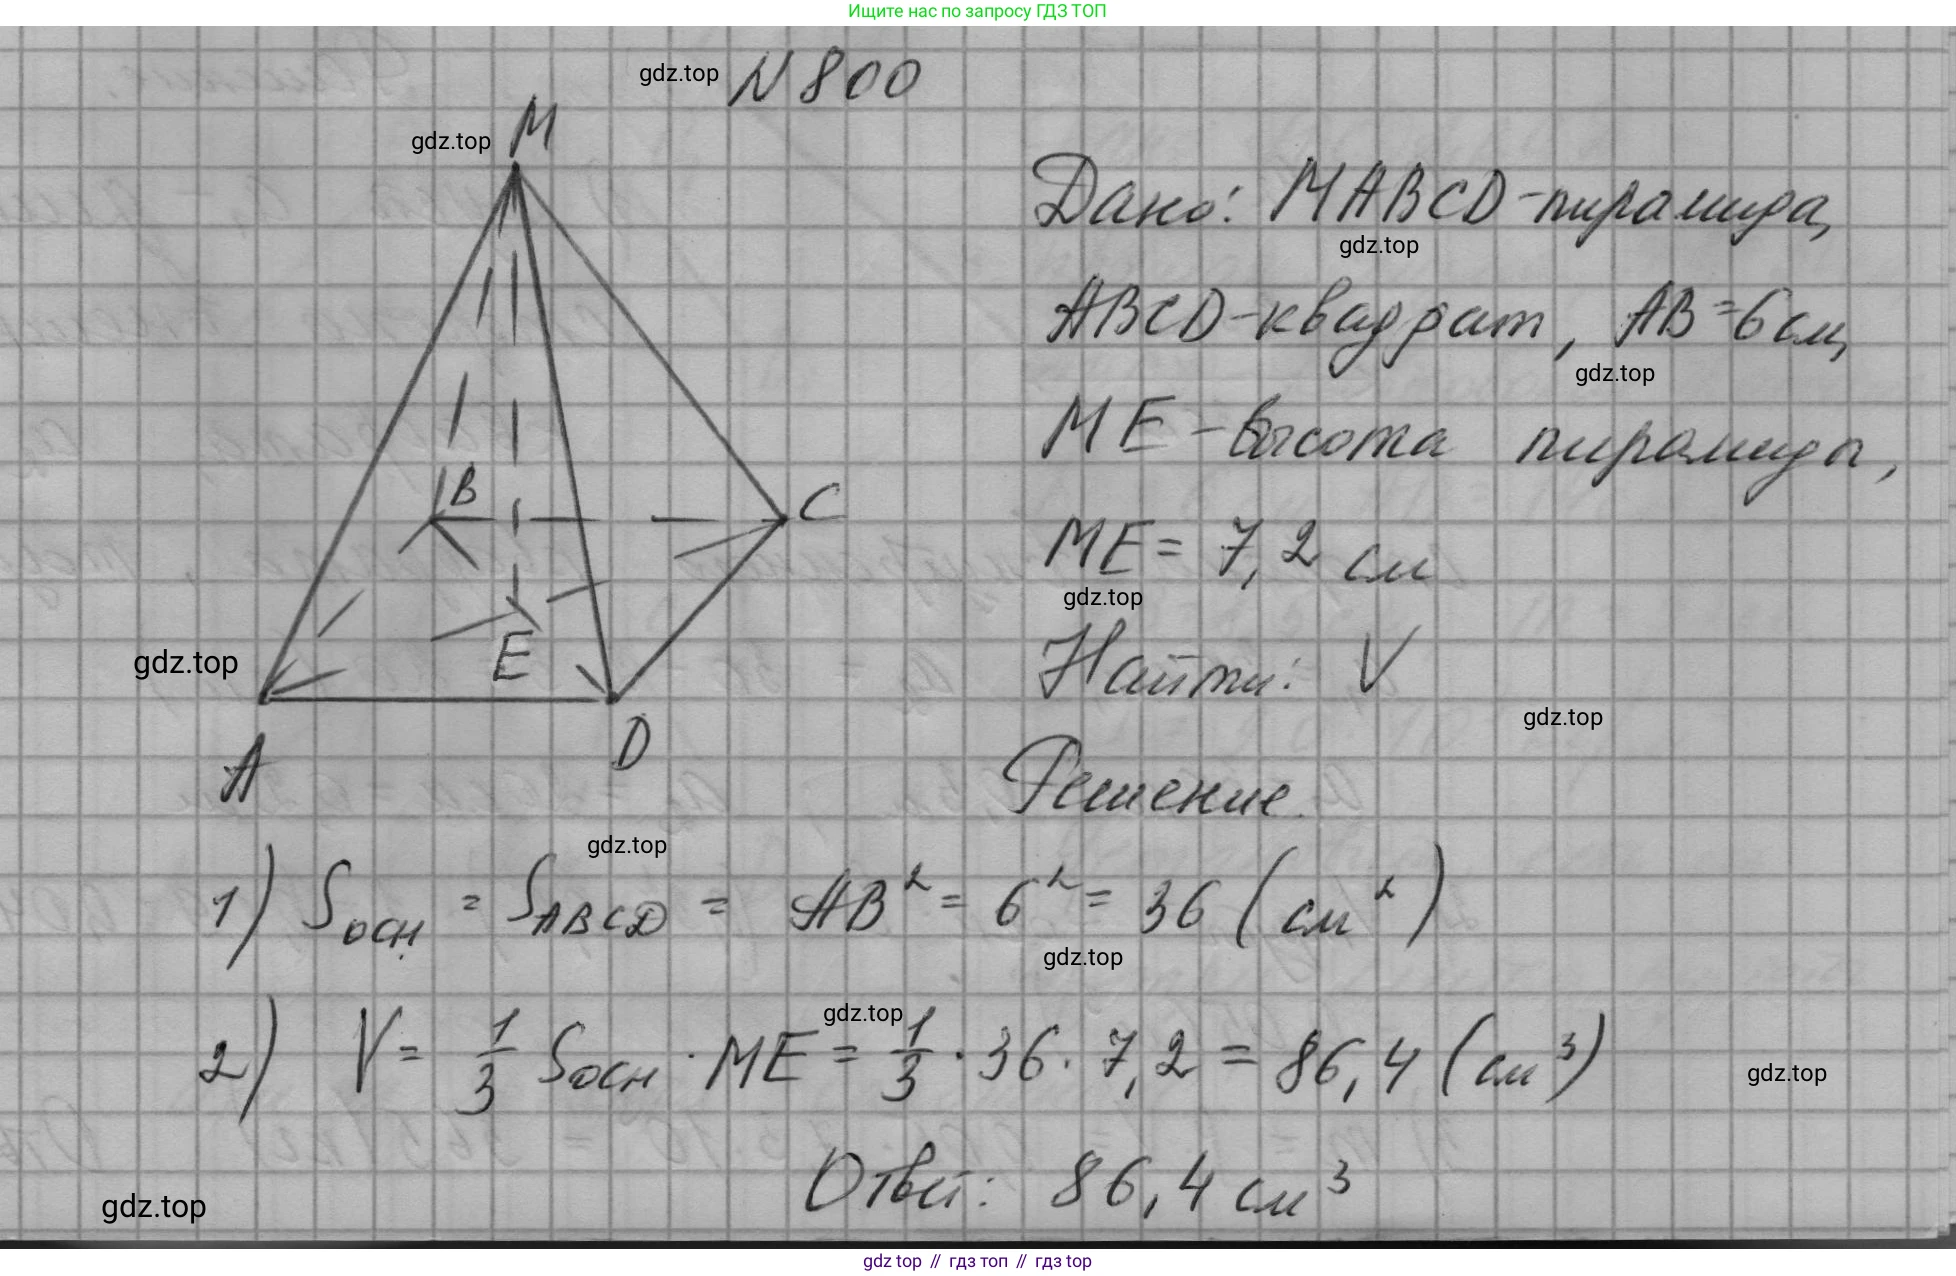 Ищите нас по запросу ГДЗ ТОП
gdz.top
N 800
gdz.top
M
Дано: MABCD-пирамида,
gdz.top
ABCD-квадрат, AB=6 см,
gdz.top
ME-высота пирамиды,
B
C
ME= 7,2 см
gdz.top
E
Найти: V
gdz.top
gdz.top
A
D
Решение.
gdz.top
1) Sосн. = SABCD = AB² = 6² = 36 (см²)
gdz.top
gdz.top
2) V= 1/3 Sосн · ME = 1/3 · 36 · 7,2 = 86,4 (см³)
gdz.top
Ответ: 86,4 см³
gdz.top
gdz top // гдз топ // гдз top